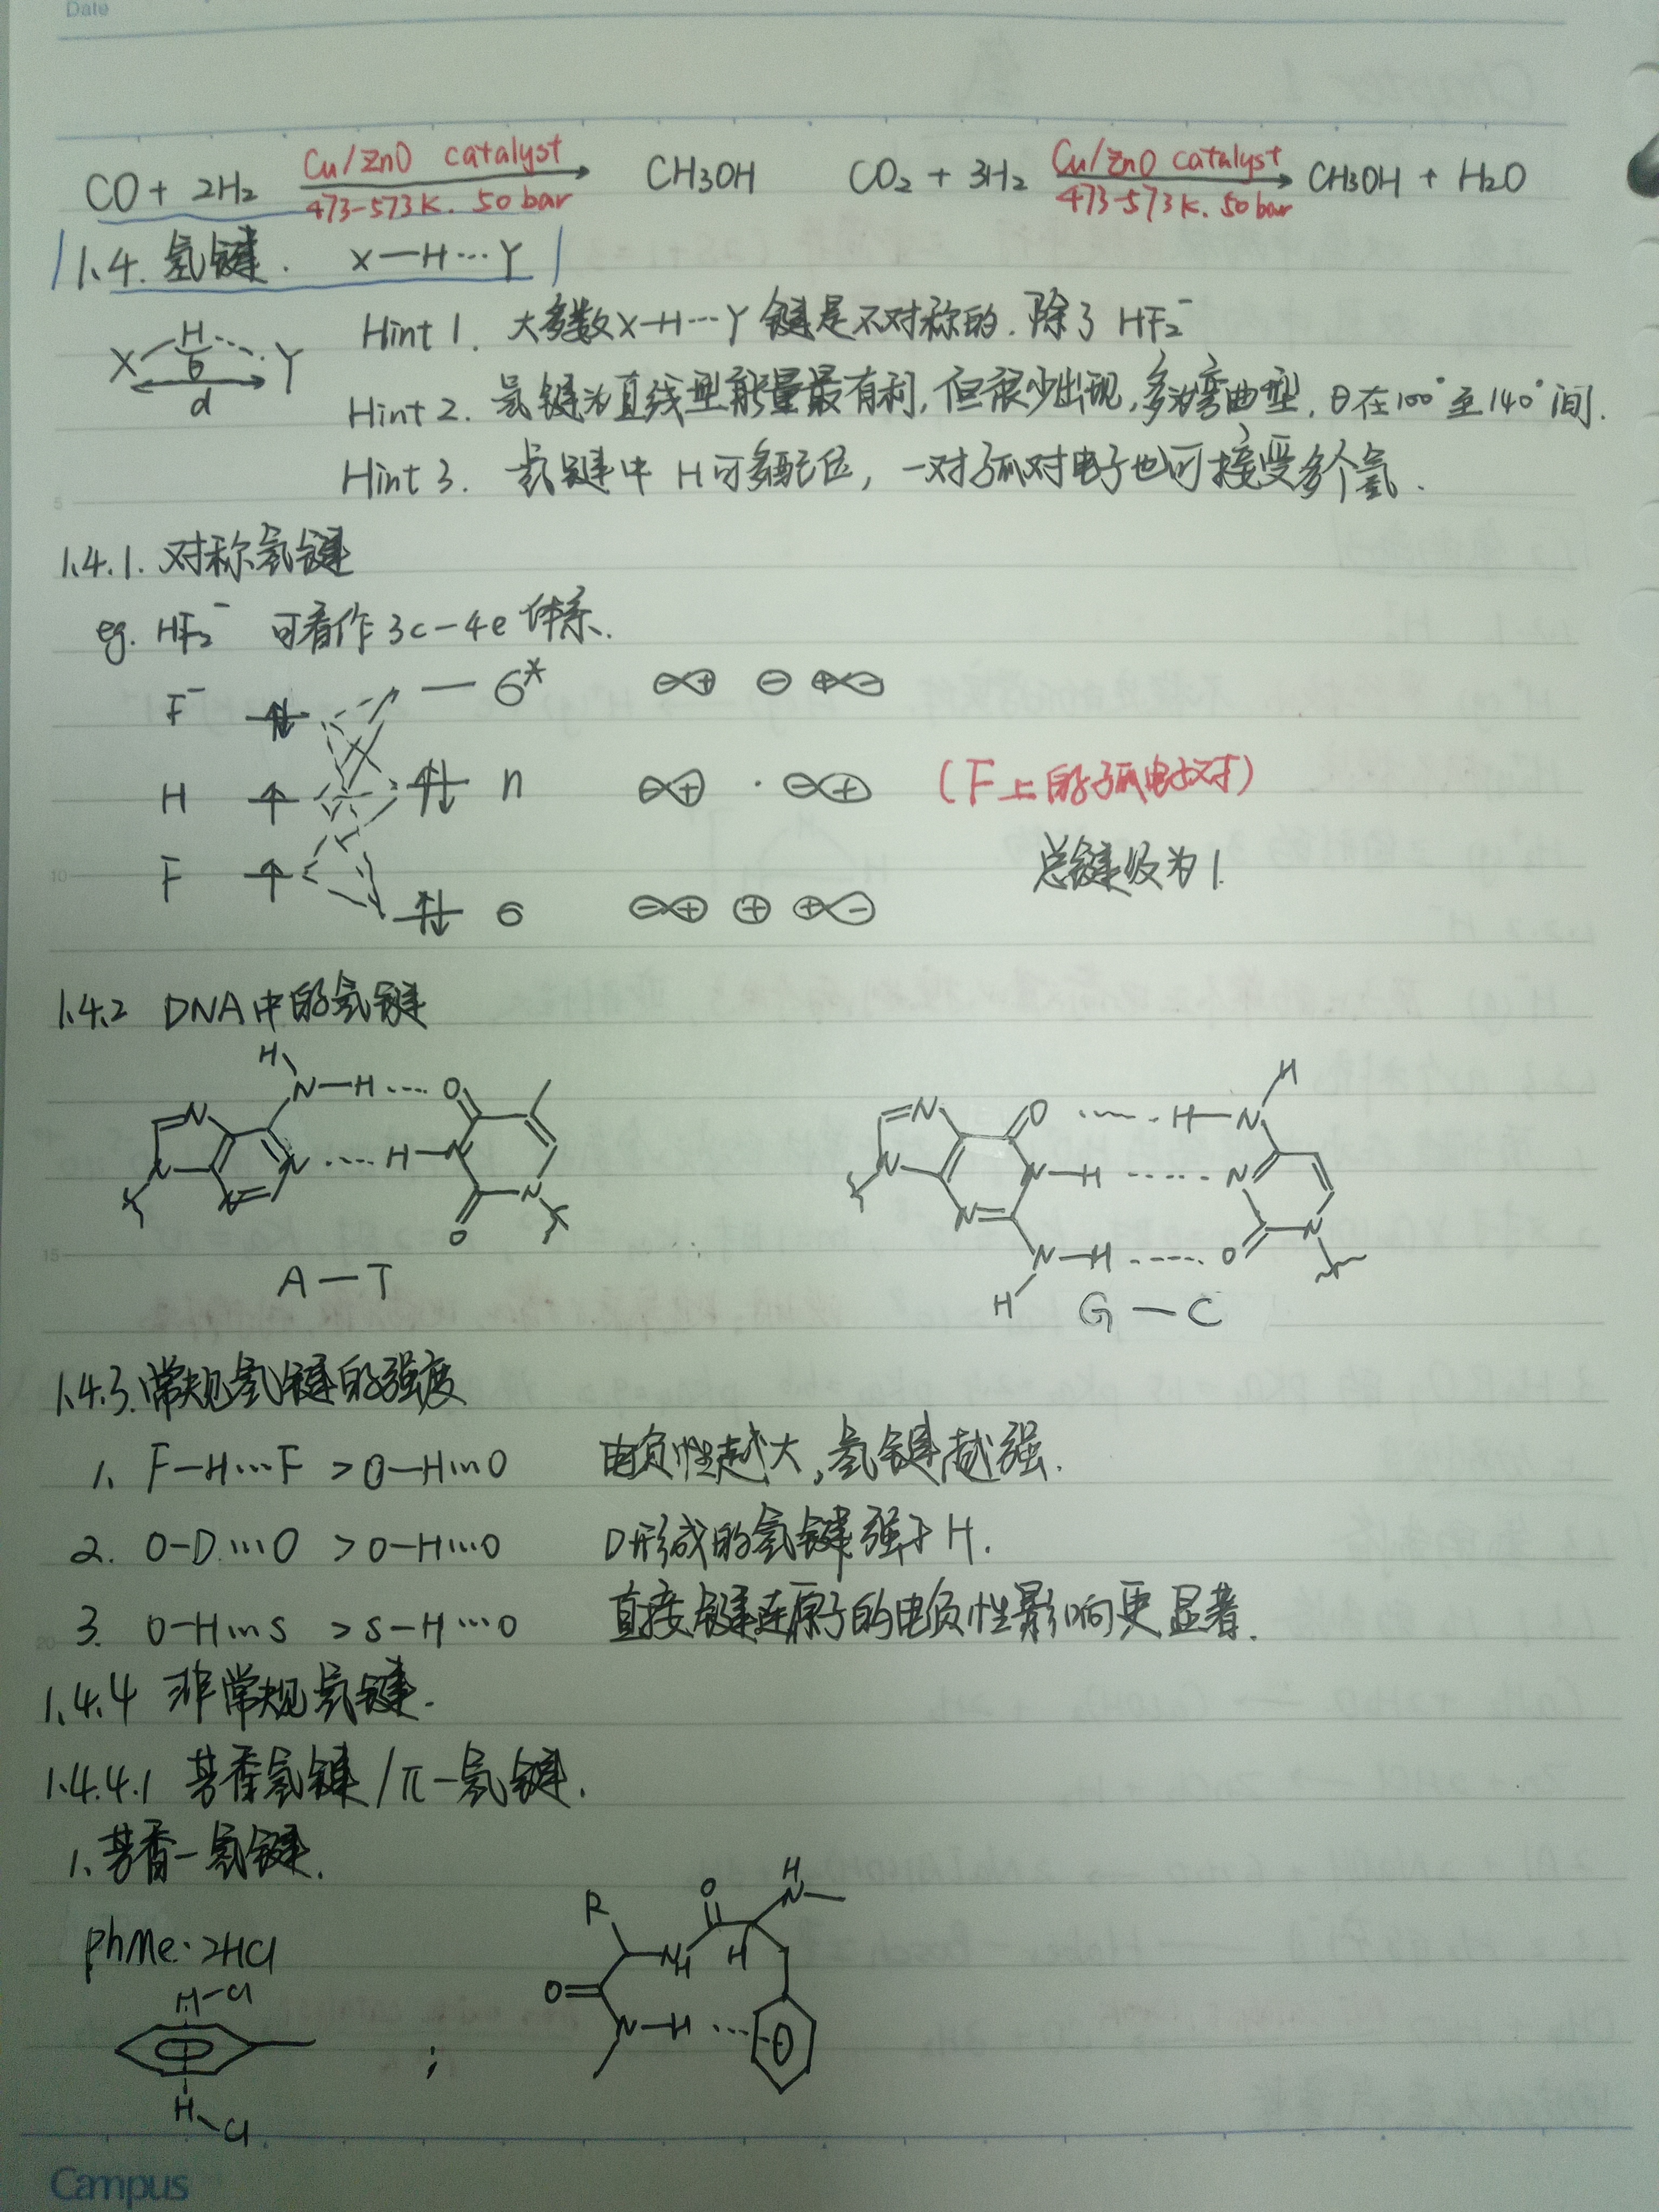 Date
CO + 2H₂ Cu/ZnO catalyst 473-573K. 50bar → CH3OH CO₂ + 3H₂ Cu/ZnO catalyst 473-573K. 50bar → CH3OH + H₂O
1.4. 氢键. X—H…Y
X H Y θ d
Hint 1. 大多数X-H…Y键是不对称的. 除了 HF₂⁻
Hint 2. 氢键为直线型能量最有利, 但很少出现, 多为弯曲型, θ在100°至140°间.
Hint 3. 氢键中 H可多配位, 一对孤对电子也可接受多个氢.
1.4.1. 对称氢键
eg. HF₂⁻ 可看作3c-4e体系.
F⁻ σ*
H n (F上的孤电子对)
F 总键级为1.
σ
1.4.2 DNA中的氢键
H H
N—H…O O…H—N
N N
N…H—N N—H…N
N N N N N N
O N—H…O
H
A—T G—C
1.4.3.常规氢键的强度
1. F-H…F > O-H…O 电负性越大, 氢键越强.
2. O-D…O > O-H…O D形成的氢键强于H.
3. O-H…S > S-H…O 直接键连原子的电负性影响更显著.
1.4.4 非常规氢键.
1.4.4.1 芳香氢键/π-氢键.
1. 芳香-氢键.
phMe·2HCl
H-Cl
H-Cl
;
R O H N
N H H
O
N-H…
Campus
5
10
15
20